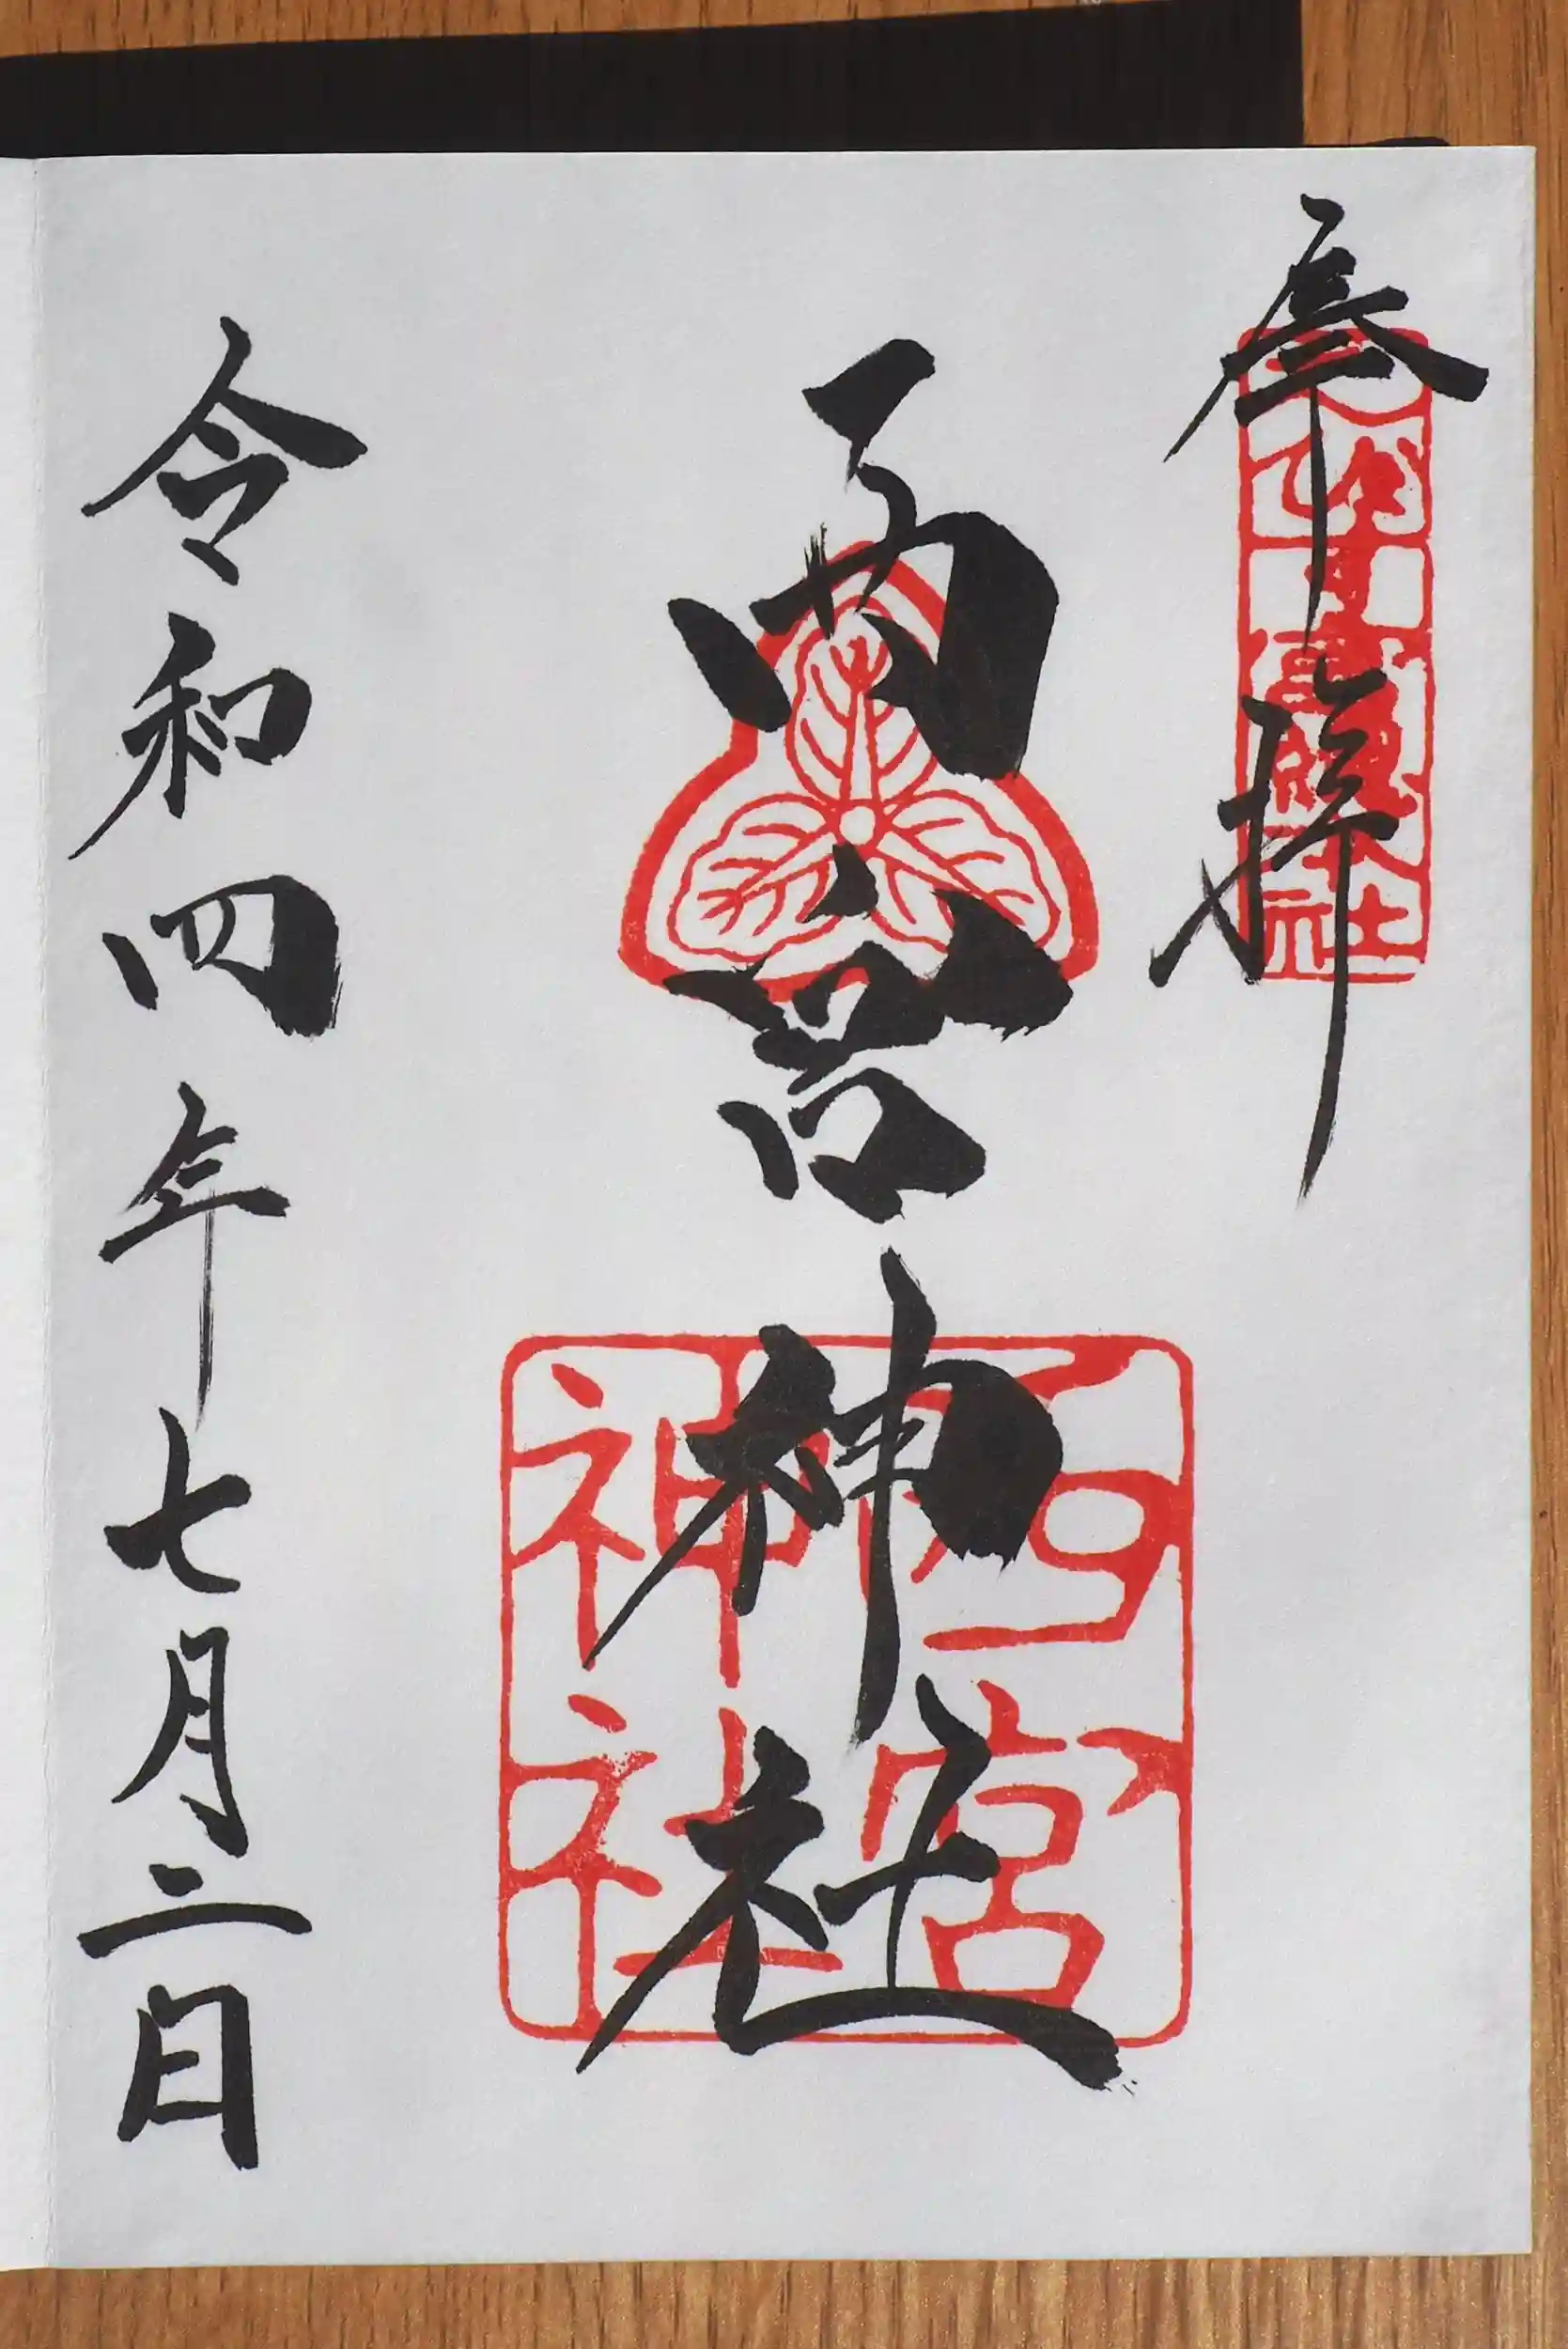 奉拝
西宮神社
令和四年七月二日
西宮
神社